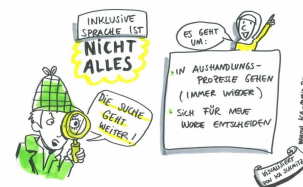 INKLUSIVE
SPRACHE IST
NICHT
ALLES
DIE SUCHE
GEHT
WEITER!
ES GEHT
UM:
IN AUSHANDLUNGS-
PROZESSE GEHEN
(IMMER WIEDER)
SICH FÜR NEUE
WORE ENTSCHEIDEN
VISUALISIERT
VON KA SCHMITZ